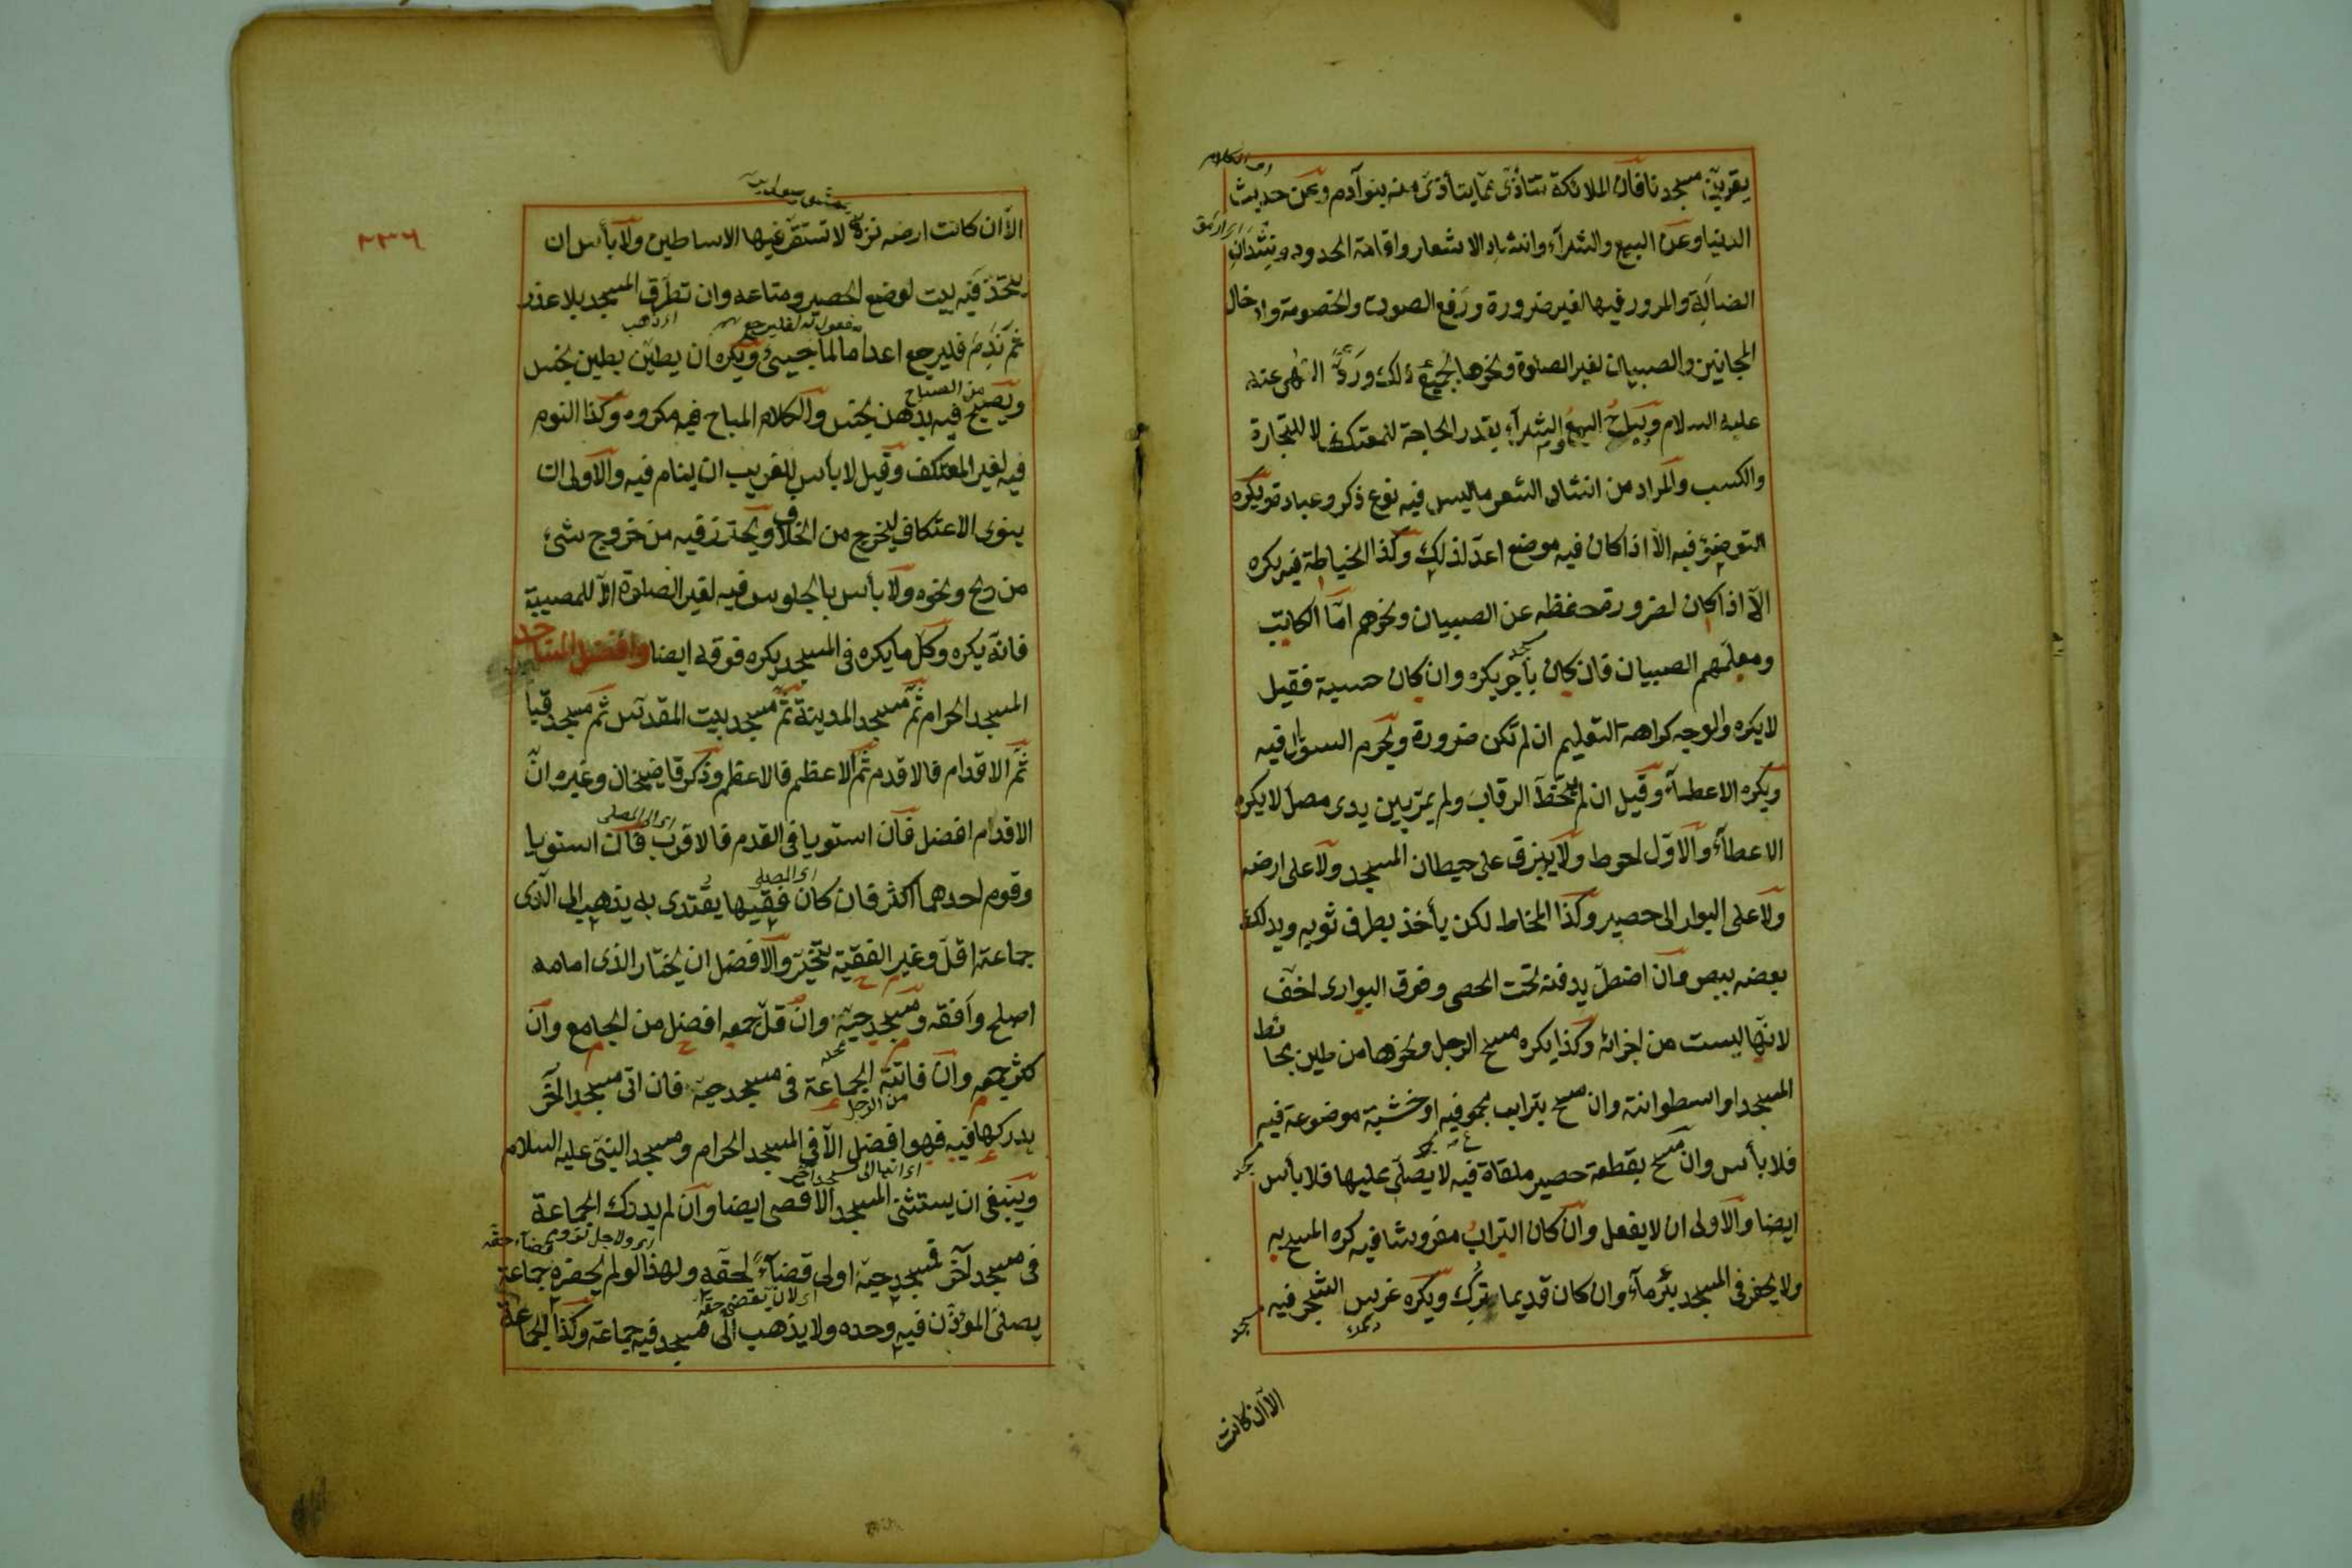 يقربنّ مسجدنا فانّ الملائكة تتأذّى ممّا يتأذى منه بنو آدم وعن حديث
الدنيا وعن البيع والشرآء وانشاد الاشعار واقامة الحدود ونشدان
الضالّة والمرور فيها لغير ضرورة ورفع الصوت والخصومة وادخال
المجانين والصبيان لغير الصلوة ونحوها لجميع ذلك ورد النهى عنه
عليه السلام ويباح البيع والشرآء بقدر الحاجة للمعتكف لا للتجارة
والكسب والمراد من انشاد الشعر ما ليس فيه نوع ذكر وعبادة ويكره
التوضؤ فيه الاّ اذا كان فيه موضع اعدّ لذلك وكذا الخياطة فيه يكره
الاّ اذا كان لضرورة حفظه عن الصبيان ونحوهم امّا الكاتب
ومعلّمهم الصبيان فان كان بأجر يكره وان كان حسبة فقيل
لا يكره والوجه كراهة التعليم ان لم تكن ضرورة ويحرم السؤال فيه
ويكره الاعطآء وقيل ان لم يتخطّ الرقاب ولم يمرّ بين يدى مصلّ لا يكره
الاعطآء والاوّل احوط ولا يبزق على حيطان المسجد ولا على ارضه
ولا على البوارى الحصير وكذا المخاط لكن يأخذ بطرف ثوبه ويدلك
بعضه ببعض وان اضطرّ يدفنه تحت الحصى وفوق البوارى اخفّ
لانّها ليست من اجزائه وكذا يكره مسح الرجل ونحوها من طين بحائط
المسجد او اسطوانته وان مسح بتراب مجموع فيه او خشبة موضوعة فيه
فلا بأس وان مسح بقطعة حصير ملقاة فيه لا يصلّى عليها فلا بأس
ايضا والاولى ان لا يفعل وان كان التراب مفروشا فيه كره المسح به
ولا يحفر فى المسجد بئر مآء وان كان قديما يترك ويكره غرس الشجر فيه
الاّ ان كانت
٢٣٦
الاّ ان كانت ارضه نزة لا تستقرّ فيها الاساطين ولا بأس ان
يتخذ فيه بيت لوضع الحصير ومتاعه وان تطرّق المسجد بلا عذر
ثم ندم فليرجع اعداما لما جيئ ويكره ان يطيّن بطين نجس
من الصباح
ويصبح فيه بدهن نجس والكلام المباح فيه مكروه وكذا النوم
فيه لغير المعتكف وقيل لا بأس للغريب ان ينام فيه والاولى ان
ينوى الاعتكاف ليخرج من الخلاف ويحترز فيه من خروج شئ
من ريح ونحوه ولا بأس بالجلوس فيه لغير الصلوة الاّ للمصيبة
فانّه يكره وكلّ ما يكره فى المسجد يكره فوقه ايضا وافضل المساجد
المسجد الحرام ثمّ مسجد المدينة ثمّ مسجد بيت المقدس ثم مسجد قبا
ثمّ الاقدام فالاقدم ثمّ الاعظم فالاعظم وذكر قاضيخان وغيره انّ
اى الى المصلى
الاقدام افضل فان استويا فى القدم فالاقرب فان استويا
اى المصلى
وقوم احدهما اكثر فان كان فقيها يقتدى به يذهب الى الذى
جماعته اقلّ وغير الفقيه يتخيّر والافضل ان يختار الذى امامه
اصلح وافقه ومسجد حيّه وان قلّ جمعه افضل من الجامع وان
كثر جمعه وان فاتته الجماعة فى مسجد حيّه فان اتى مسجد اآخر
من الرجل
يدركها فيه فهو افضل الاّ فى المسجد الحرام ومسجد النبى عليه السلام
وينبغى ان يستثنى المسجد الاقصى ايضا وان لم يدرك الجماعة
فى مسجد آخر فمسجد حيّه اولى قضآءً لحقّه ولهذا لو لم يحضره جماعة
اى لان يقضى حقّه
يصلى المؤذّن فيه وحده ولا يذهب الى مسجد فيه جماعة وكذا الجماعة